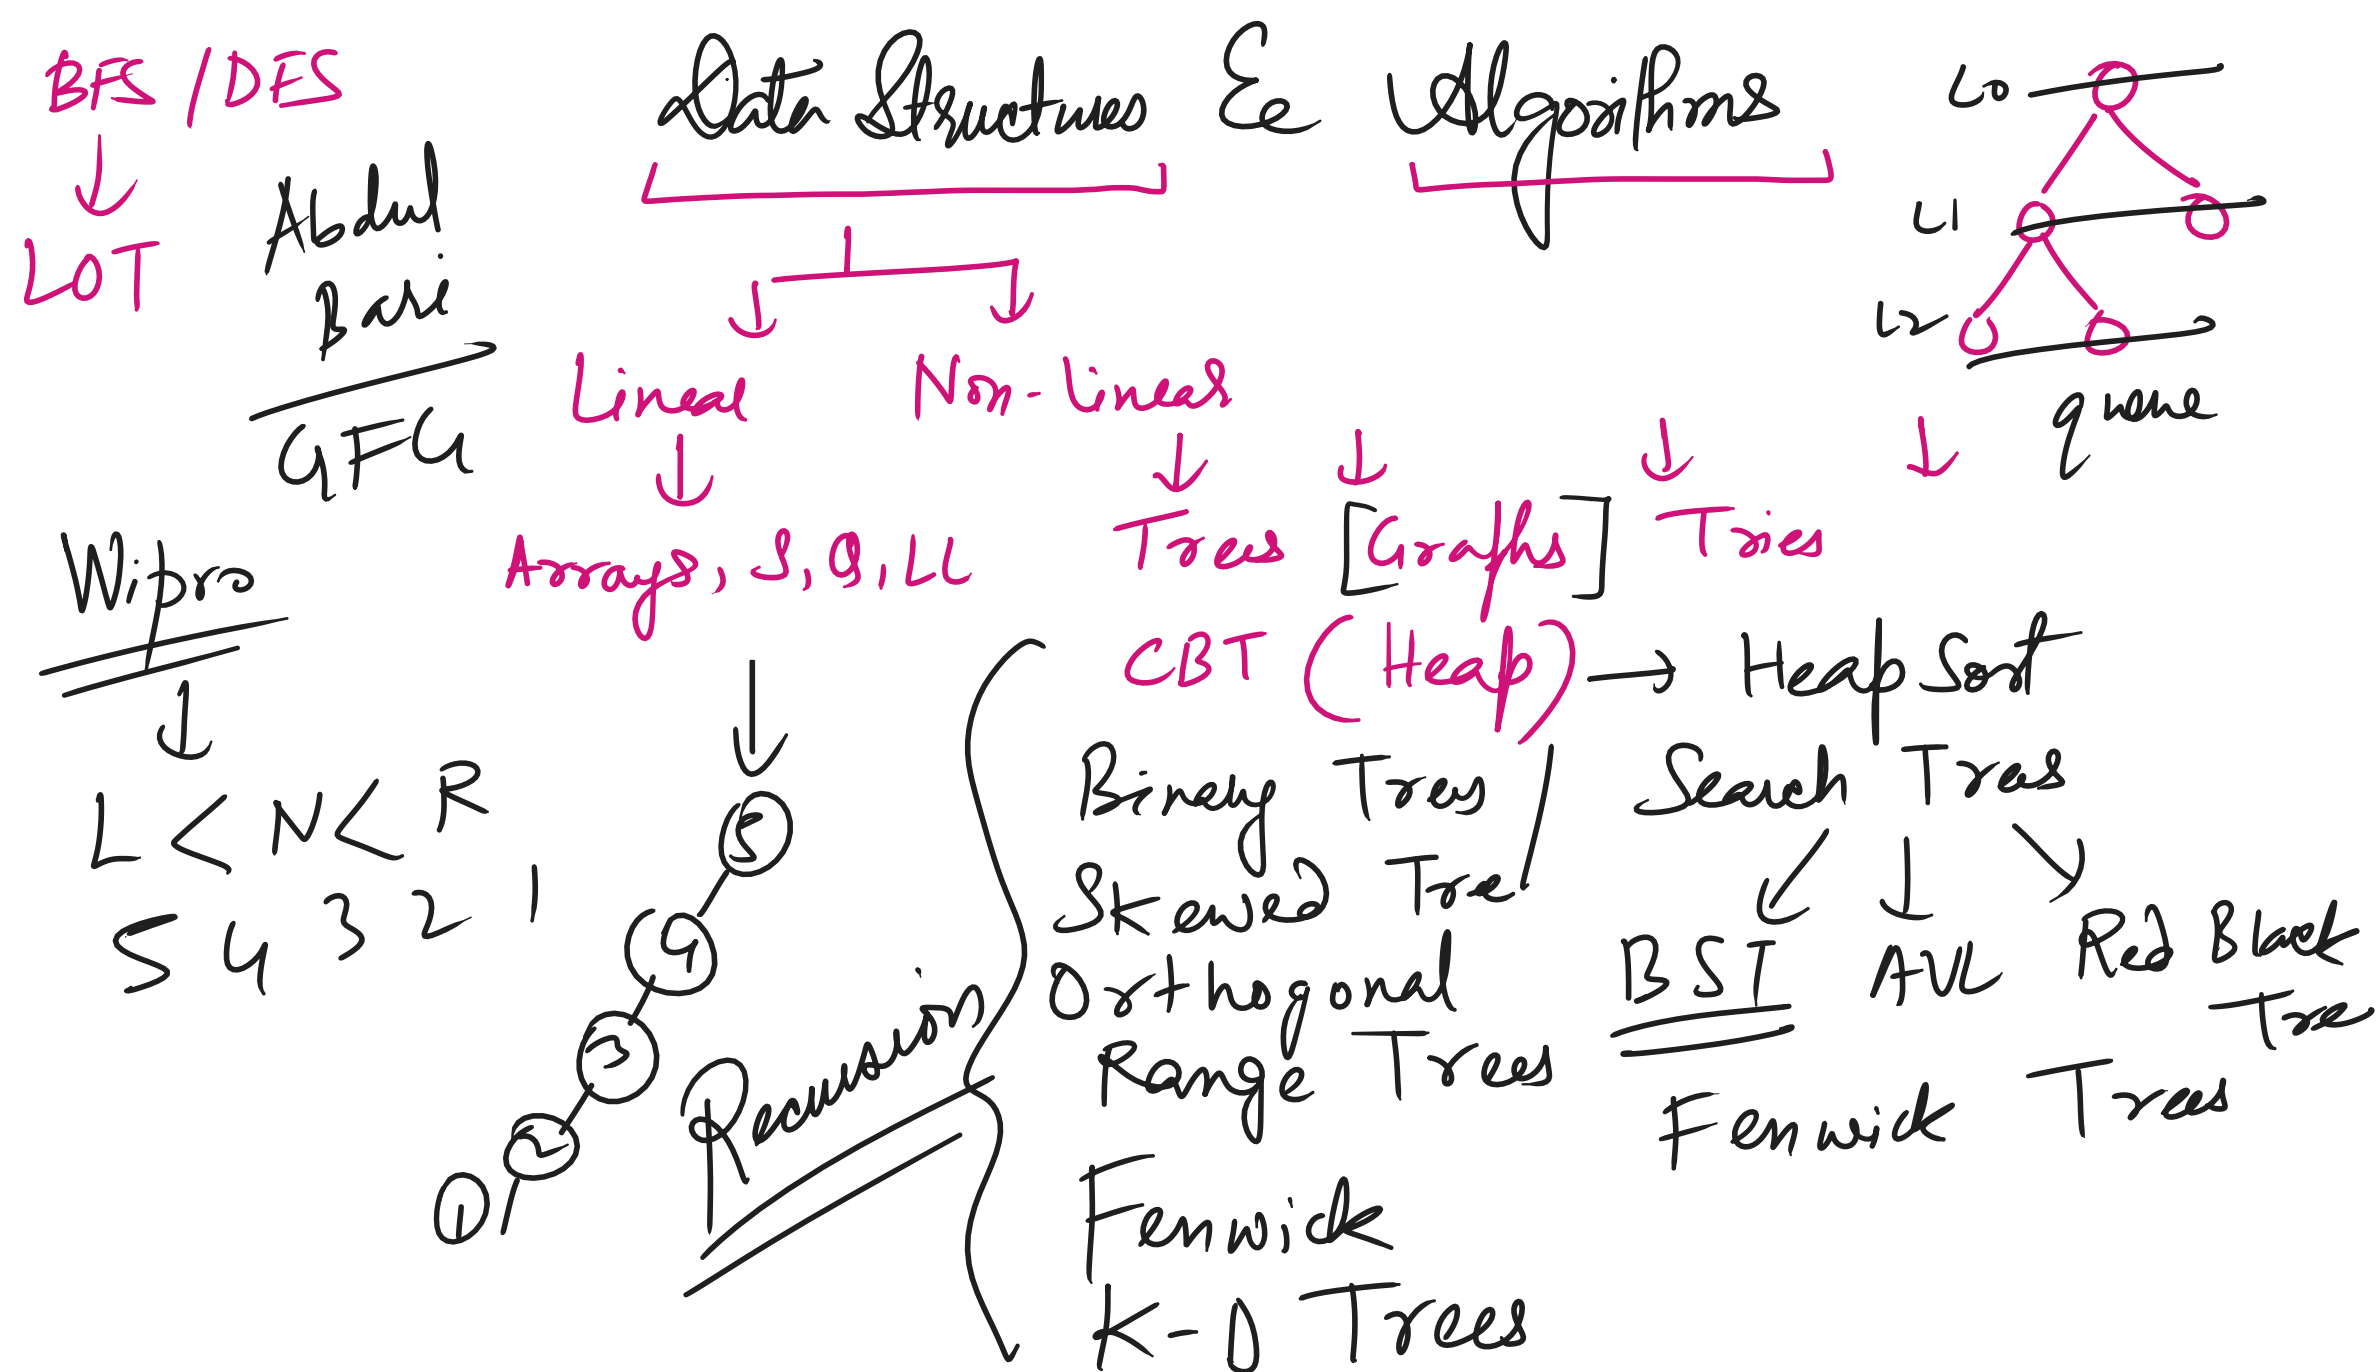 Data Structures & Algorithms
BFS / DFS
LOT
Abdul
Bari
GFG
L0
L1
L2
queue
Linear
Non-Linear
Arrays, S, Q, LL
Trees [Graphs] Tries
Wipro
L < N < R
5 4 3 2 1
5
4
3
2
1
Recursion
CBT (Heap) → Heap Sort
Binary Trees
Skewed Tree
Orthogonal
Range Trees
Fenwick
K-D Trees
Search Trees
BST
AVL
Red Black
Tree
Fenwick Trees